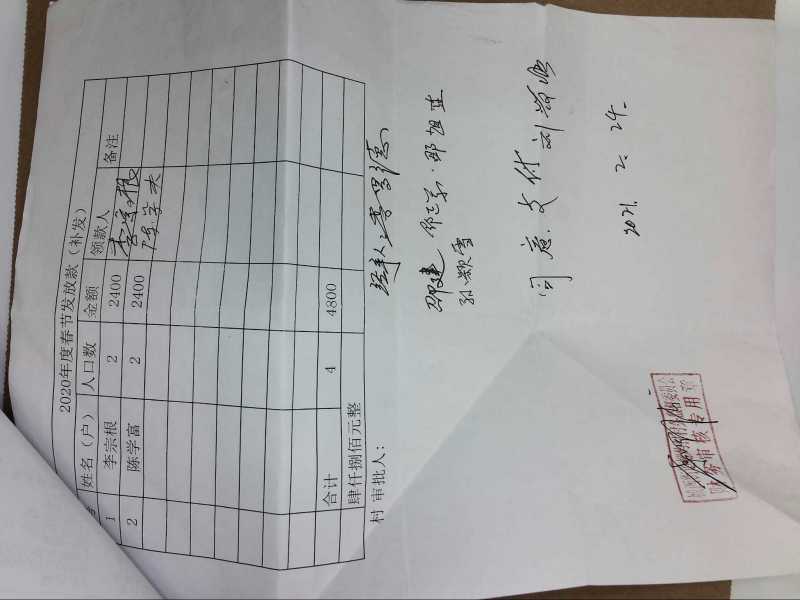 2020年度春节发放款（补发）
姓名（户） 人口数 金额 领款人 备注
1 李宗根 2 2400 李宗根
2 陈学富 2 2400 陈学夫
合计 4 4800
肆仟捌佰元整
村 审批人： 经手人：李
邵建 邵旭
孙颖雪
同意支付 刘
2021. 2. 24.
财务审核专用章